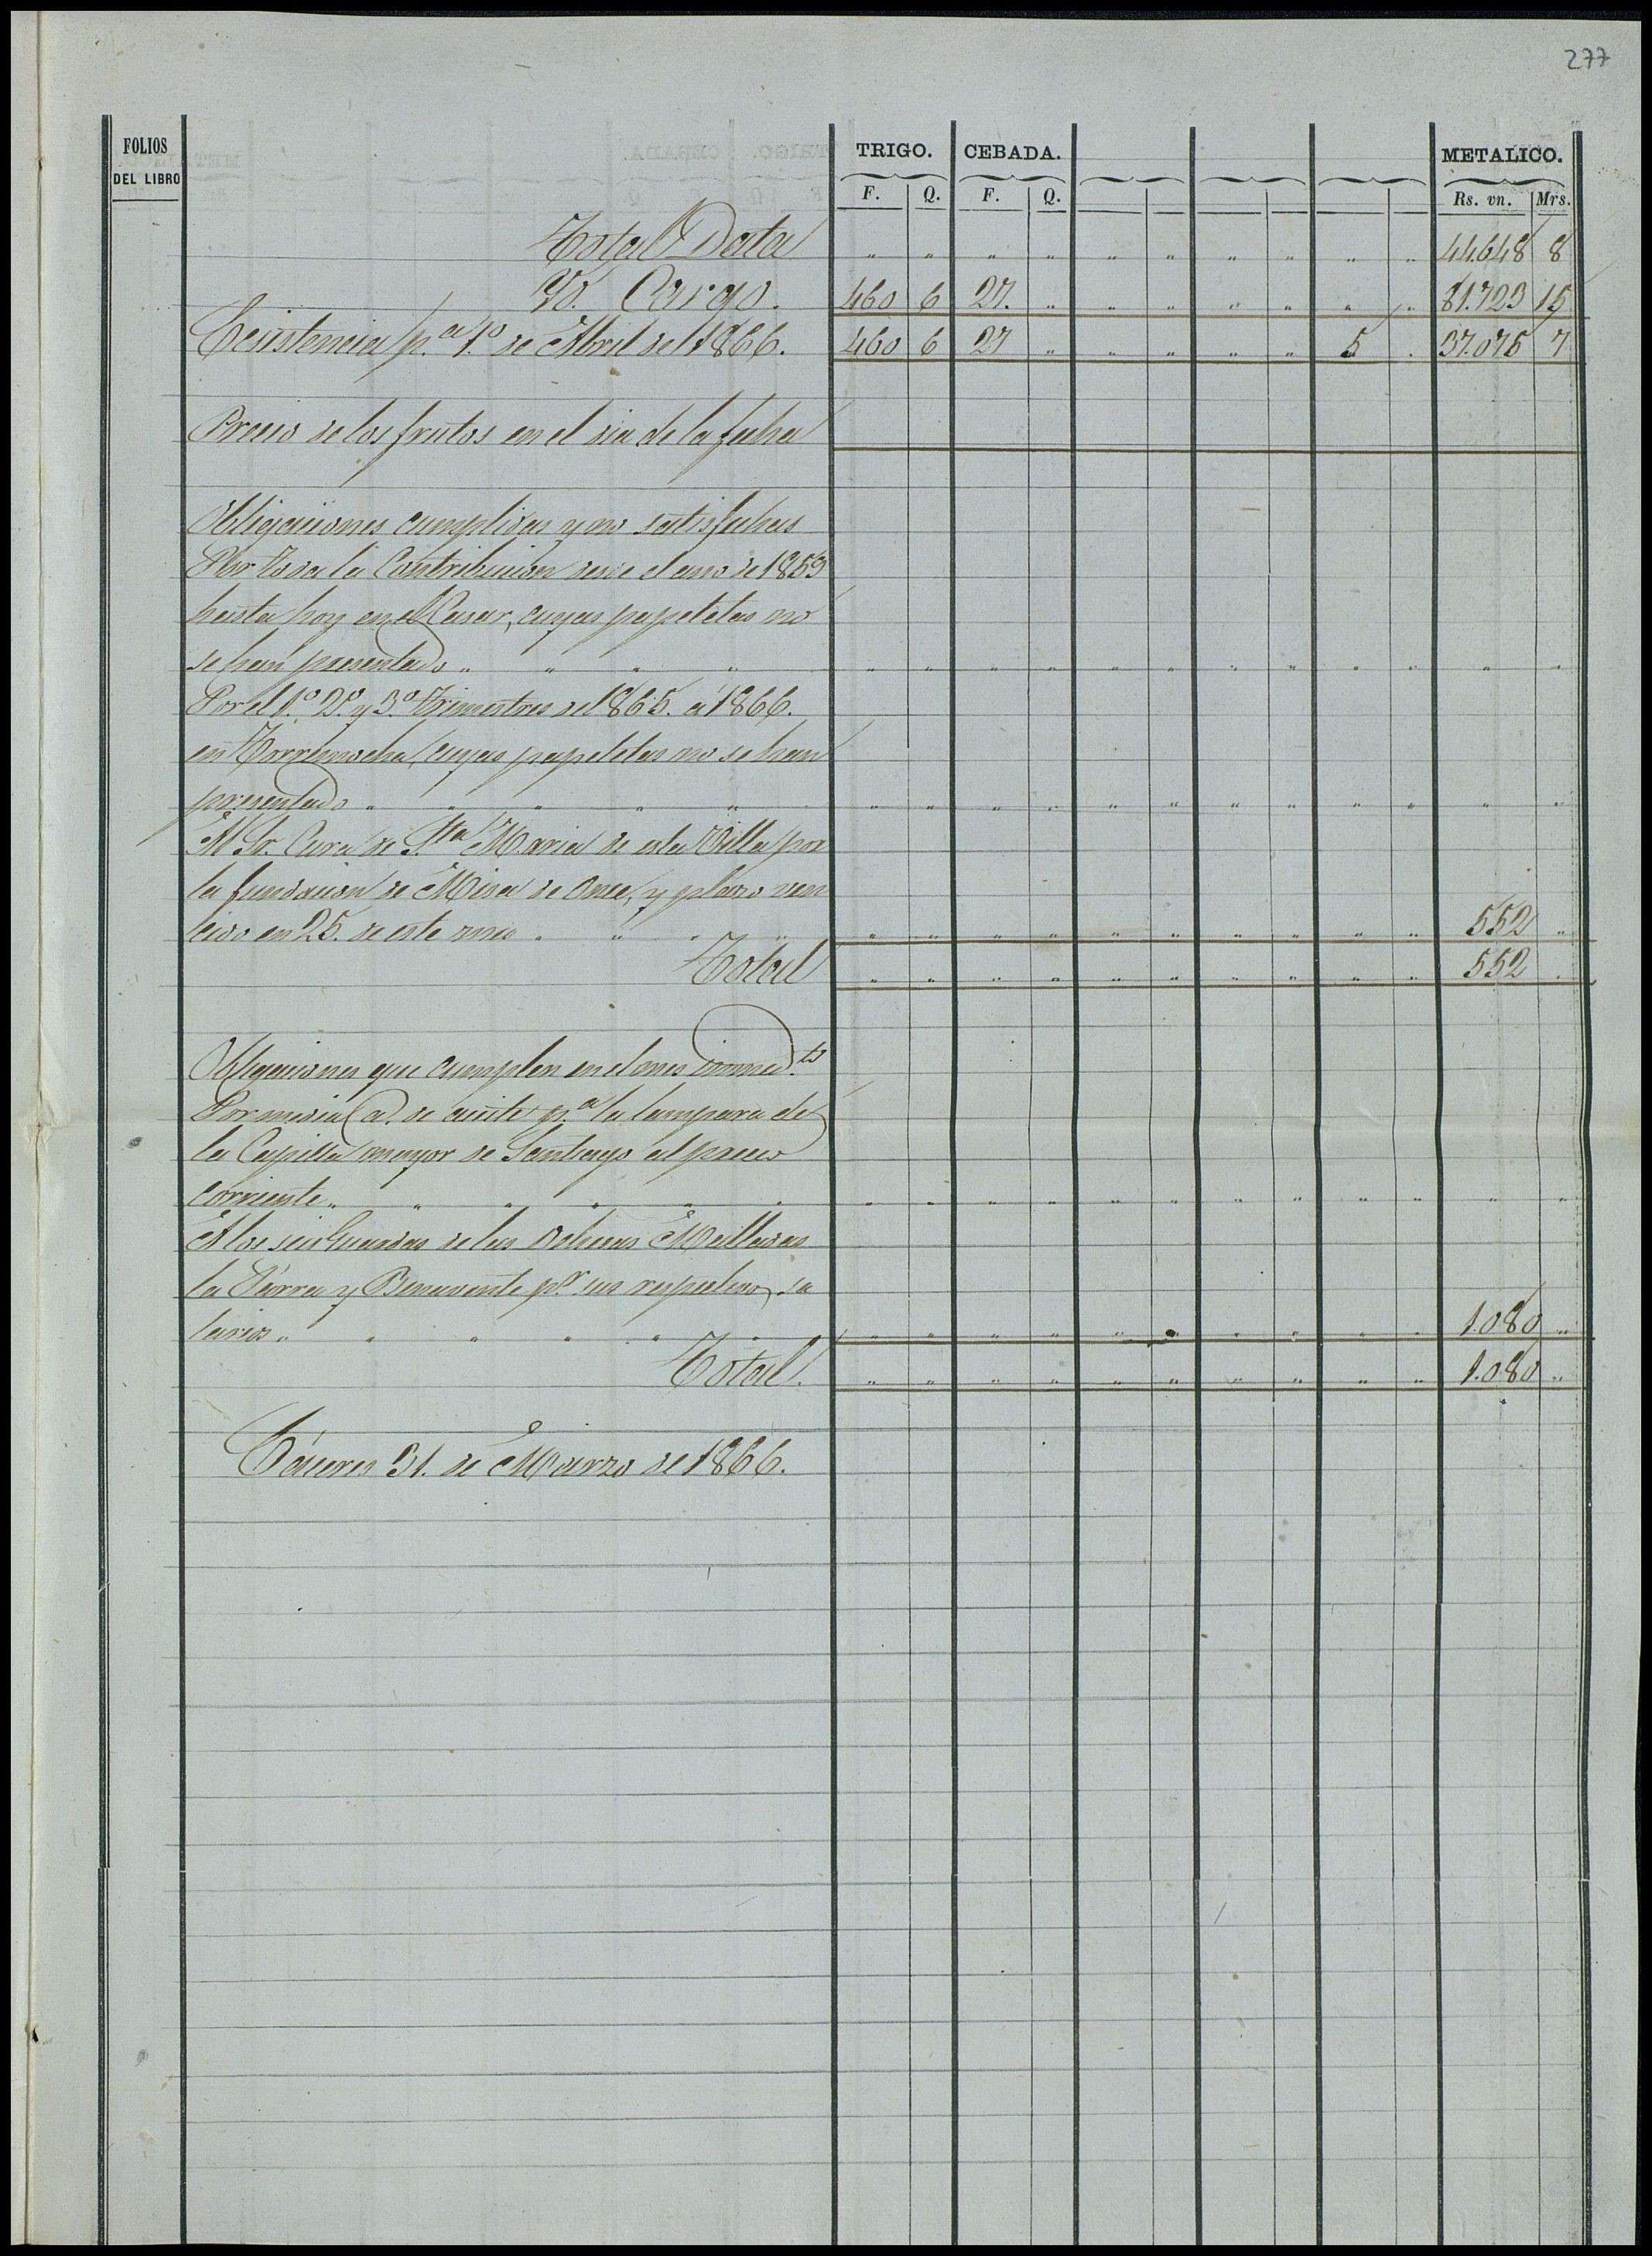 277
FOLIOS DEL LIBRO TRIGO. CEBADA. METALICO.
F. Q. F. Q. Rs. vn. Mrs.
Total Data " " " " " " " " " " 44.648 8
Yd. Cargo. 460 6 27. " " " " " " " 81.723 15
Existencia p.a 1.o de Abril del 1866. 460 6 27 " " " " " 5 . 37.075 7
Precio de los frutos en el dia de la fecha
Obligaciones cumplidas y no satisfechas
Por toda la Contribucion desde el año de 1853
hasta hoy en el Casar, cuyas papeletas no
se han presentado " " " " " " " " " " " " " " " "
Por el 1.o 2.o y 3.o trimestres del 1865. á 1866.
en Torremocha, cuyas papeletas no se han
presentado " " " " " " " " " " " " " " " " "
Al Sr. Cura de S.ta Maria de esta Villa por
la fundacion de Misa de Once, y plazo ven
cido en 25. de este mes " " " " " " " " " " " " " " 552 "
Total " " " " " " " " " " 552 "
Obligaciones que cumplen en el mes inmed.to
Por media @. de aceite p.a la lampara de
la Capilla mayor de Santiago al precio
corriente " " " " " " " " " " " " " " " " " "
A los seis Guardas de las Dehesas Malladas
la Tiorra y Benavente p.r sus respectivos sa
larios " " " " " " " " " " " " " " " " 1.080 "
Total. " " " " " " " " " " 1.080 "
Cáceres 31. de Marzo de 1866.